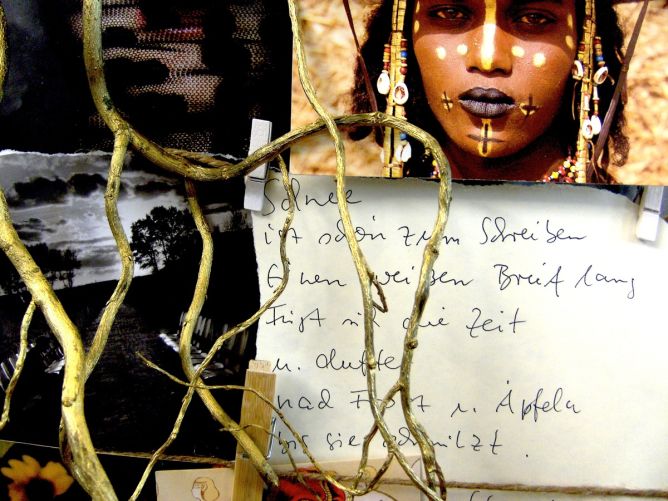 Schnee
ist schön zum Schreiben
Einen weißen Brief lang
Fügt sich die Zeit
u. duftet
nach Frost u. Äpfeln
bis sie schmilzt.